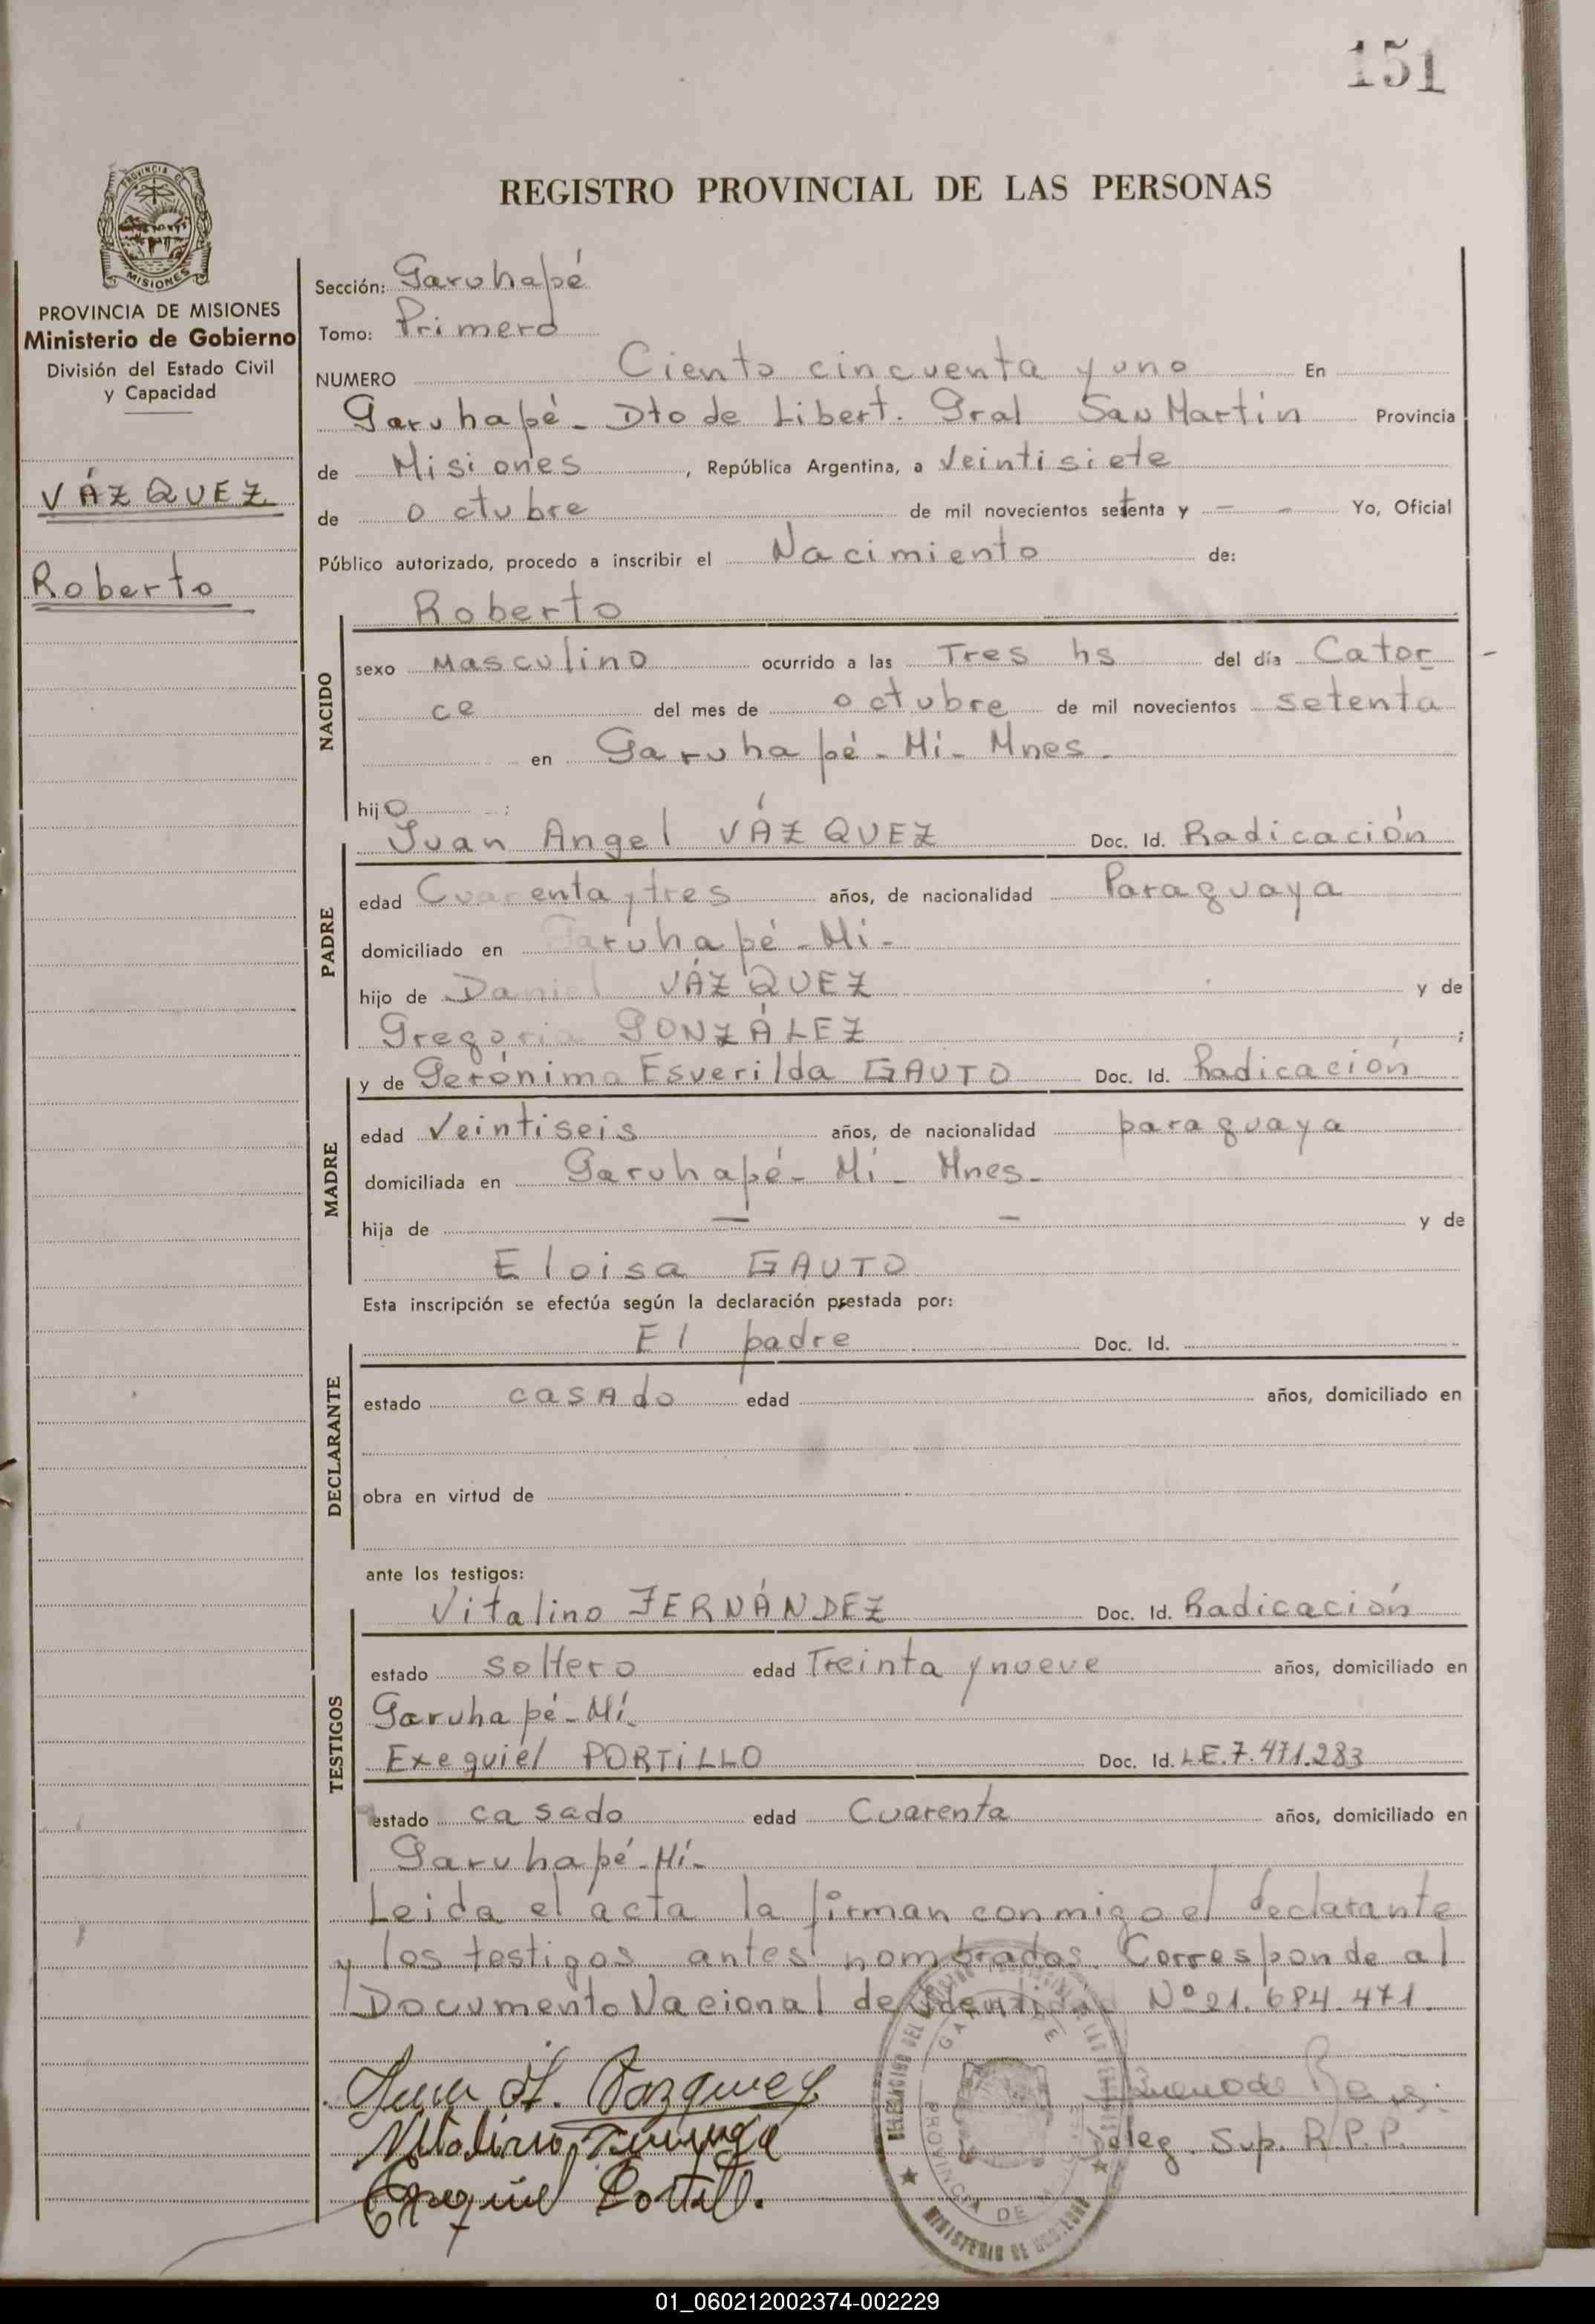 151
PROVINCIA DE MISIONES
PROVINCIA DE MISIONES
Ministerio de Gobierno
División del Estado Civil
y Capacidad
VÁZQUEZ
Roberto
REGISTRO PROVINCIAL DE LAS PERSONAS
Sección: Garuhapé
Tomo: Primero
NUMERO Ciento cincuenta y uno En
Garuhapé - Dto de Libert. Gral San Martín Provincia
de Misiones, República Argentina, a Veintisiete
de octubre de mil novecientos setenta y - - Yo, Oficial
Público autorizado, procedo a inscribir el Nacimiento de:
Roberto
NACIDO
sexo Masculino ocurrido a las Tres hs del día Cator-
ce del mes de octubre de mil novecientos setenta
en Garuhapé - Mí - Mnes -
hijo :
Juan Angel VÁZQUEZ Doc. Id. Radicación
PADRE
edad Cuarenta y tres años, de nacionalidad Paraguaya
domiciliado en Garuhapé - Mí -
hijo de Daniel VÁZQUEZ y de
Gregoria GONZÁLEZ ;
y de Gerónima Esverilda GAUTO Doc. Id. Radicación
MADRE
edad Veintiseis años, de nacionalidad paraguaya
domiciliada en Garuhapé - Mí - Mnes -
hija de - - y de
Eloisa GAUTO
Esta inscripción se efectúa según la declaración prestada por:
El padre Doc. Id.
DECLARANTE
estado casado edad años, domiciliado en
obra en virtud de
ante los testigos:
Vitalino FERNÁNDEZ Doc. Id. Radicación
TESTIGOS
estado soltero edad Treinta y nueve años, domiciliado en
Garuhapé - Mí
Exequiel PORTILLO Doc. Id. L.E. 7.471.283
estado casado edad Cuarenta años, domiciliado en
Garuhapé - Mí -
Leida el acta la firman conmigo el declarante
y los testigos antes nombrados. Corresponde al
Documento Nacional de Identidad Nº 21.684.471.
Juan A. Vazquez
Vitalino
Exequiel Portillo.
Deleg. Sup. R.P.P.
GARUHAPE
PROVINCIA DE
MINISTERIO DE GOBIERNO
01_060212002374-002229